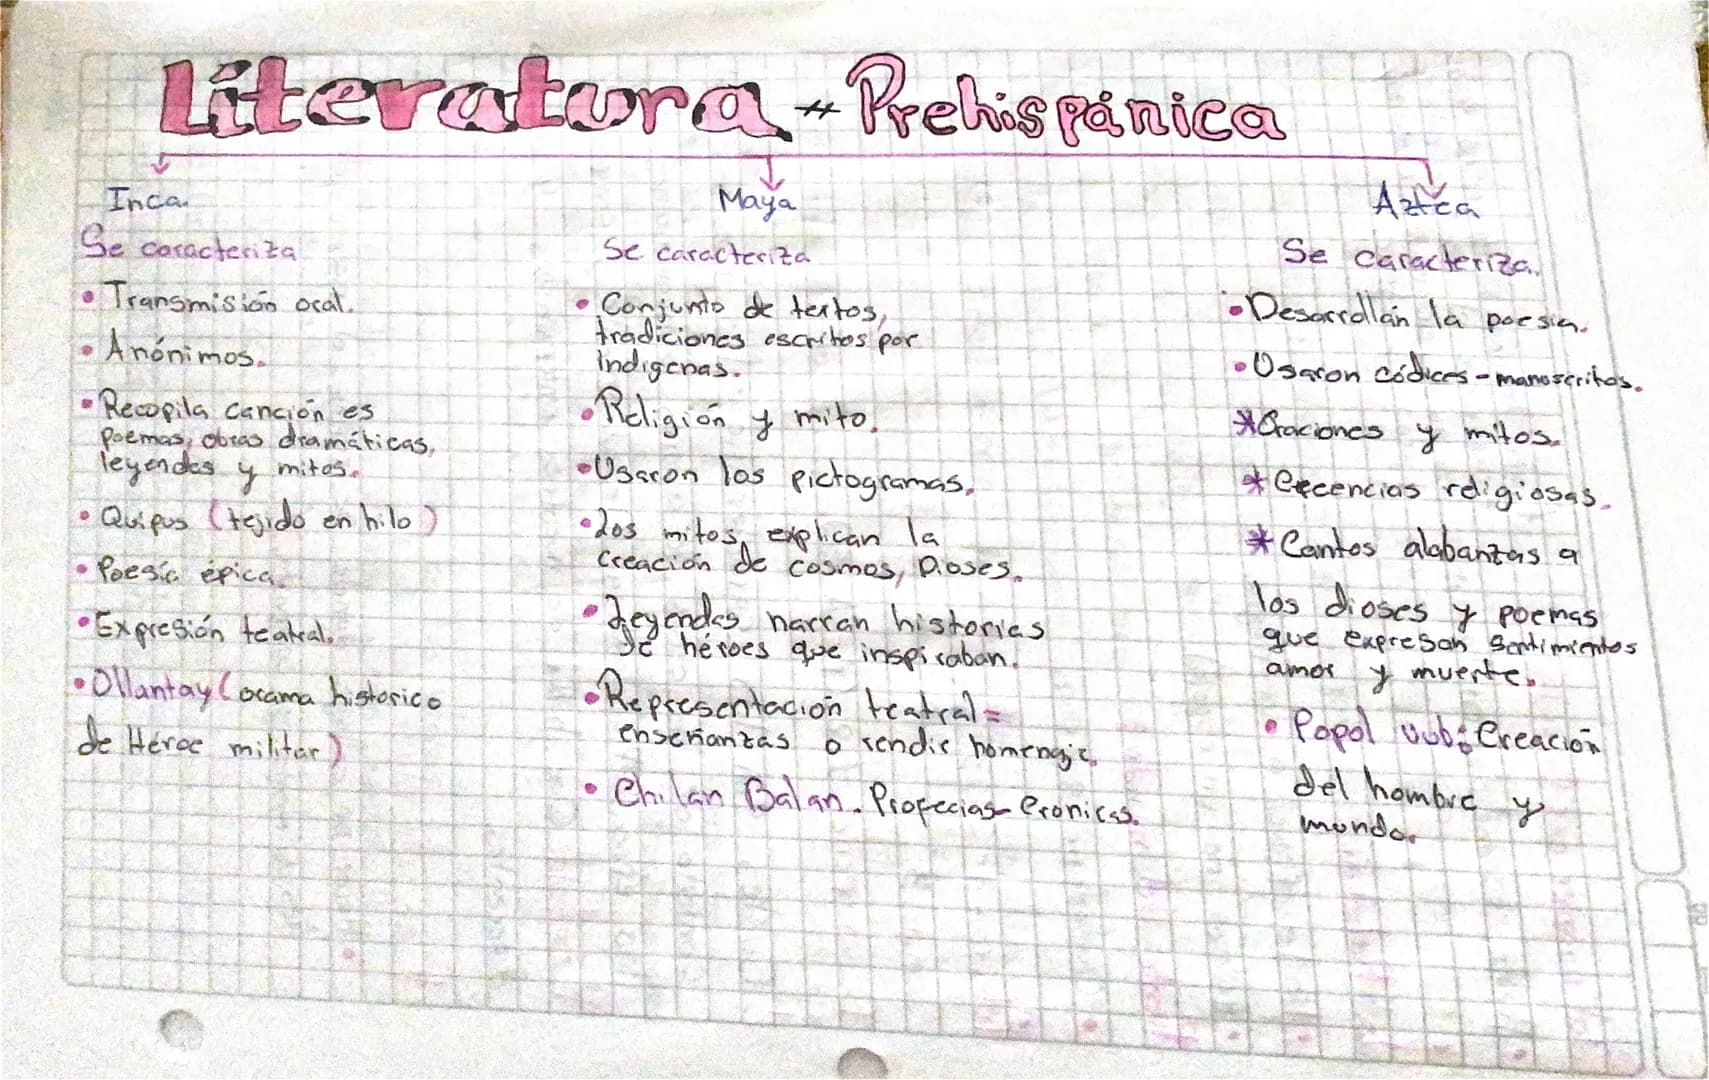 Literatura - Prehispánica
Inca.
Se caracteriza
• Transmisión oral.
• Anónimos.
• Recopila canción es
poemas, obras dramáticas,
leyendas y mitos.
• Quipus (tejido en hilo)
• Poesía épica.
• Expresión teatral.
• Ollantay (drama historico
de Héroe militar)
Maya
Se caracteriza
• Conjunto de textos,
tradiciones escritos por
Indigenas.
• Religión y mito.
• Usaron los pictogramas.
• Los mitos, explican la
creación de cosmos, Dioses.
• Leyendas narran historias
de héroes que inspiraban.
• Representación teatral=
enseñanzas o rendir homenaje.
• Chilan Balan. Profecias-Cronicas.
Azteca
Se caracteriza.
• Desarrollán la poesia.
• Usaron códices-manuscritos.
* Oraciones y mitos.
* Creencias religiosas.
* Cantos alabanzas a
los dioses y poemas
que expresan sentimientos
amor y muerte.
• Popol vub: Creación
del hombre y
mundo.